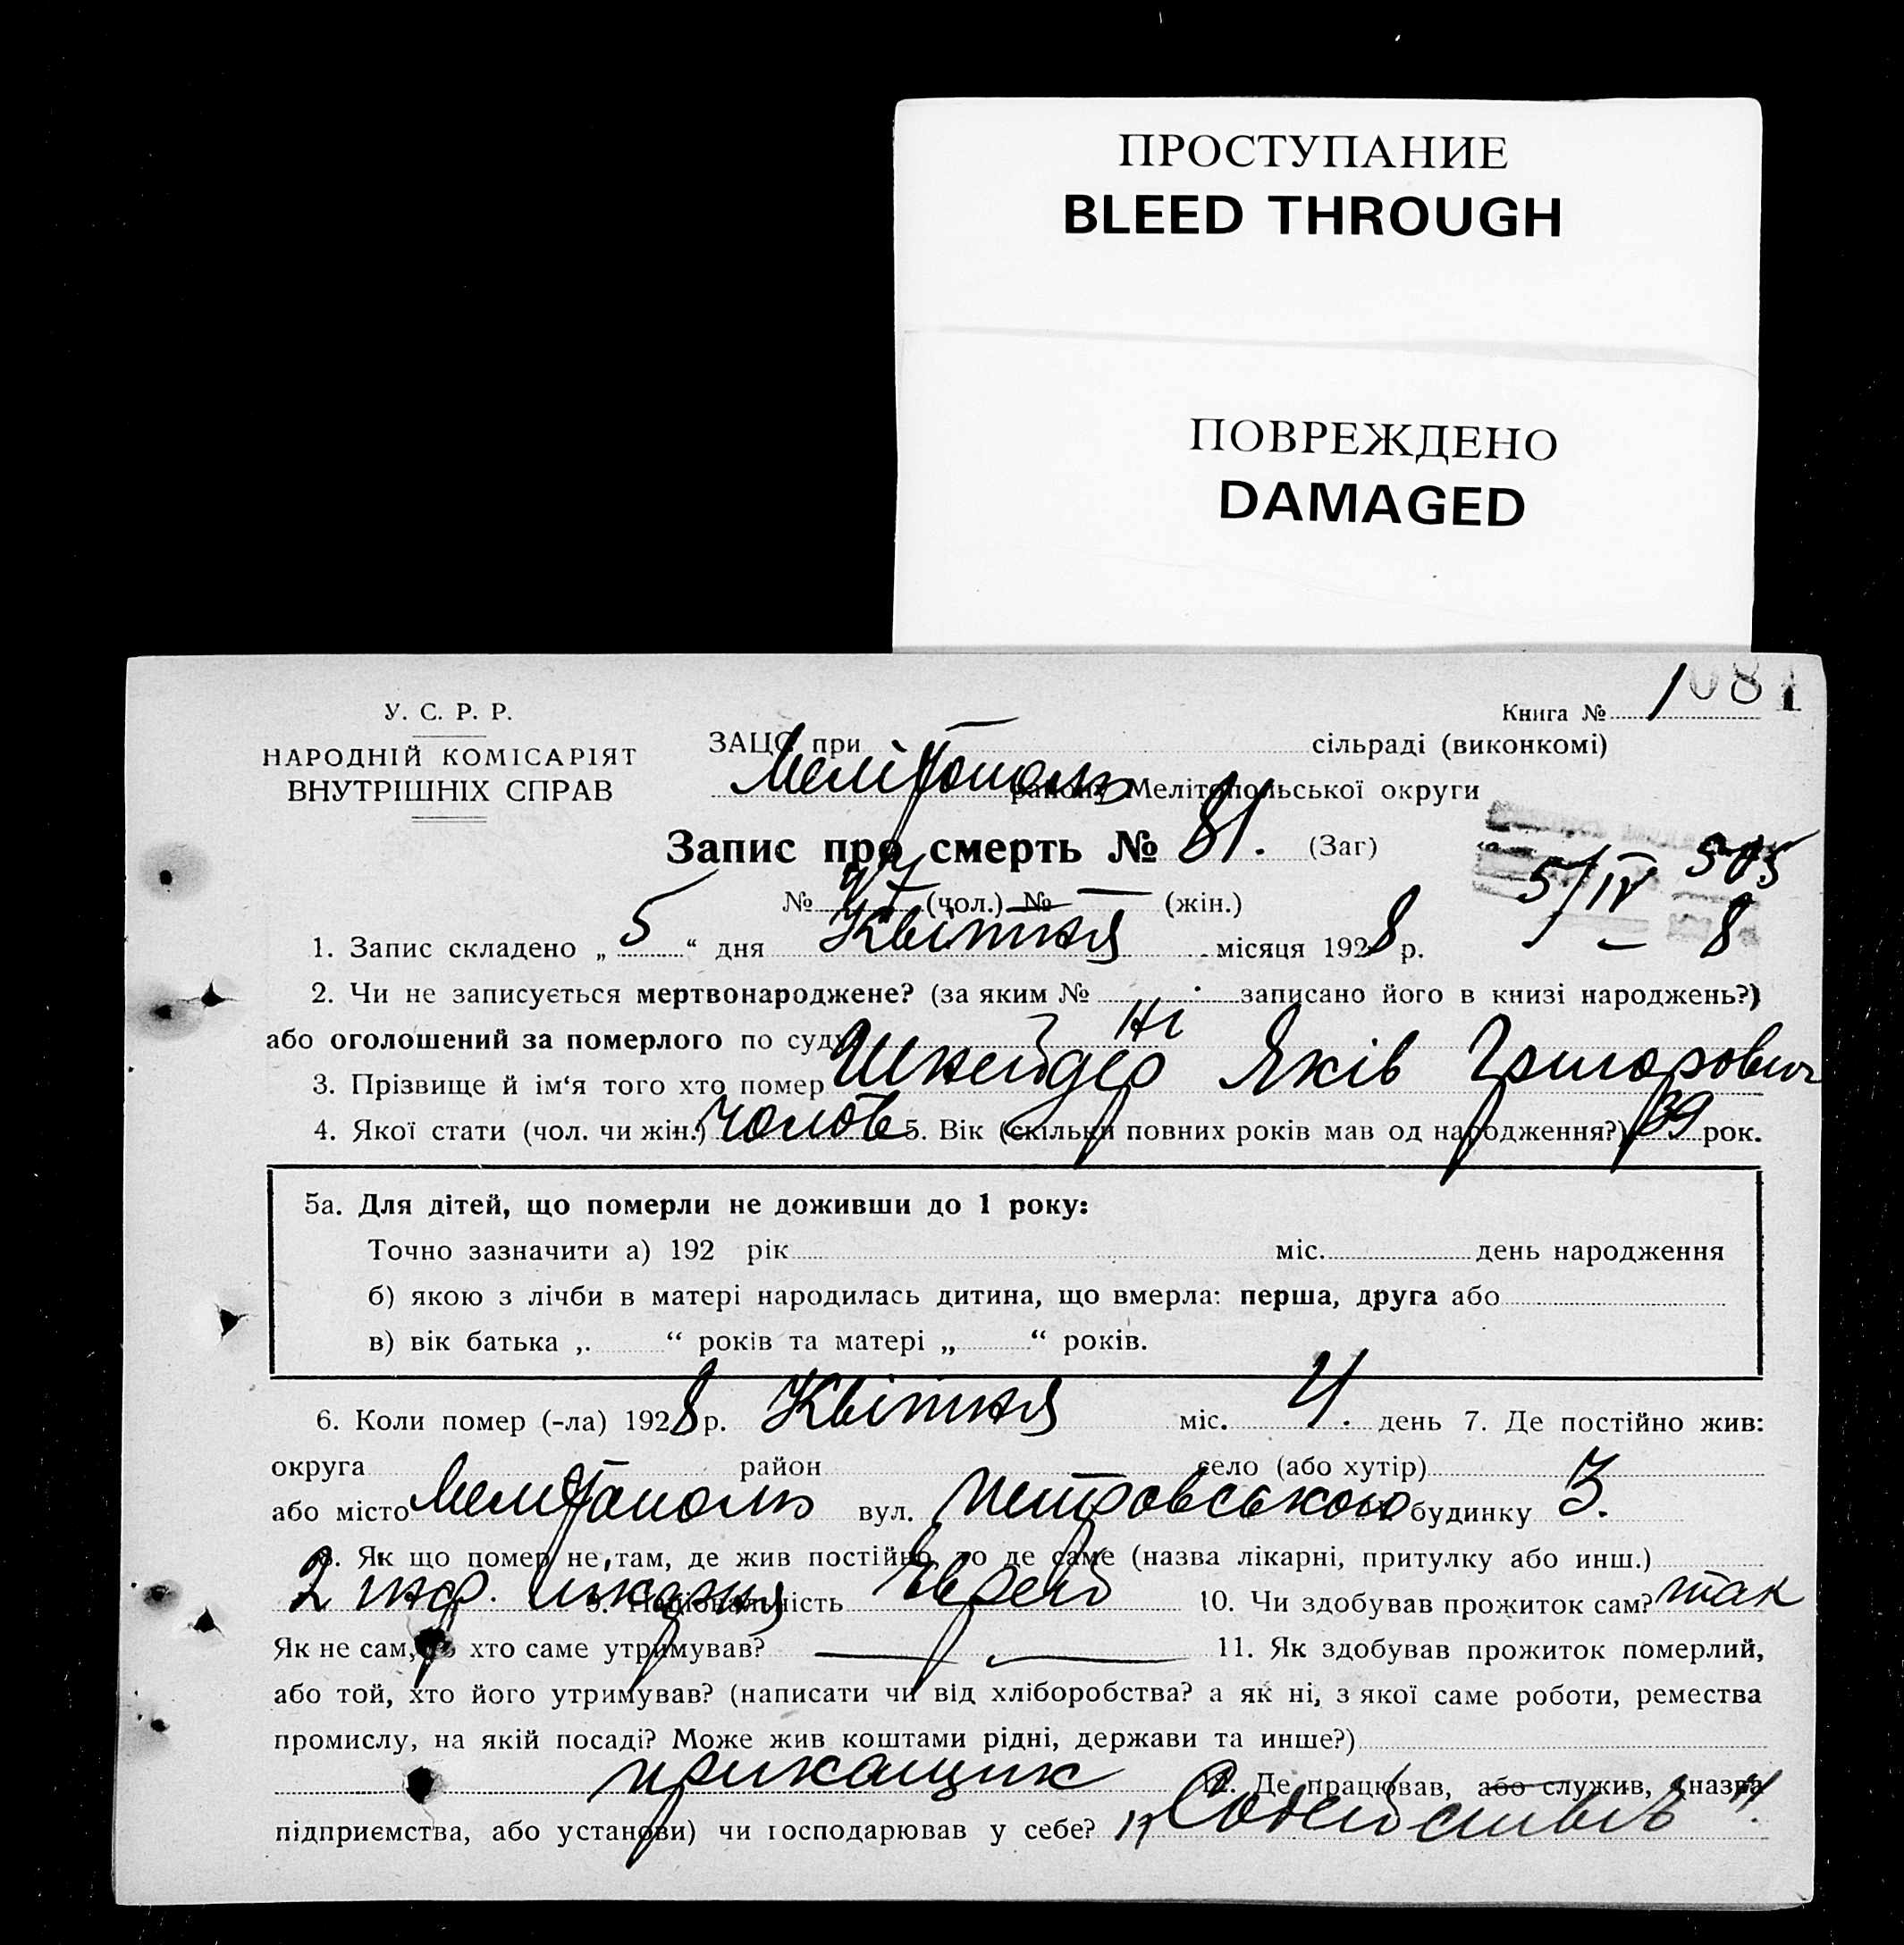 ПРОСТУПАНИЕ
BLEED THROUGH
ПОВРЕЖДЕНО
DAMAGED
1081
У. С. Р. Р.
НАРОДНІЙ КОМІСАРІЯТ
ВНУТРІШНІХ СПРАВ
Книга № 1
ЗАЦС при — сільраді (виконкомі)
Мелітополь району Мелітопольської округи
Запис про смерть № 81. (Заг)
№ 47 (чол.) № — (жін.)
5/IV 505
8
1. Запис складено „ 5 “ дня Квітня місяця 1928 р.
2. Чи не записується мертвонароджене? (за яким № записано його в книзі народжень?)
або оголошений за померлого по суду Ні
3. Прізвище й ім‘я того хто помер Шнейдер Яків Григорович
4. Якої стати (чол. чи жін.) чолов 5. Вік (скільки повних років мав од народження?) 39 рок.
5а. Для дітей, що померли не доживши до 1 року:
Точно зазначити а) 192 рік міс. день народження
б) якою з лічби в матері народилась дитина, що вмерла: перша, друга або
в) вік батька „ “ років та матері „ “ років.
6. Коли помер (-ла) 1928 р. Квітня міс. 4. день 7. Де постійно жив:
округа район село (або хутір)
або місто Мелітополь вул. Петровською будинку 3.
8. Як що помер не там, де жив постійно, то де саме (назва лікарні, притулку або инш.)
2 інф. лікарня 9. Національність Єврей 10. Чи здобував прожиток сам? так
Як не сам, то хто саме утримував? — 11. Як здобував прожиток померлий,
або той, хто його утримував? (написати чи від хліборобства? а як ні, з якої саме роботи, ремества
промислу, на якій посаді? Може жив коштами рідні, держави та инше?)
прикащик 12. Де працював, або служив, (назва
підприємства, або установи) чи господарював у себе?